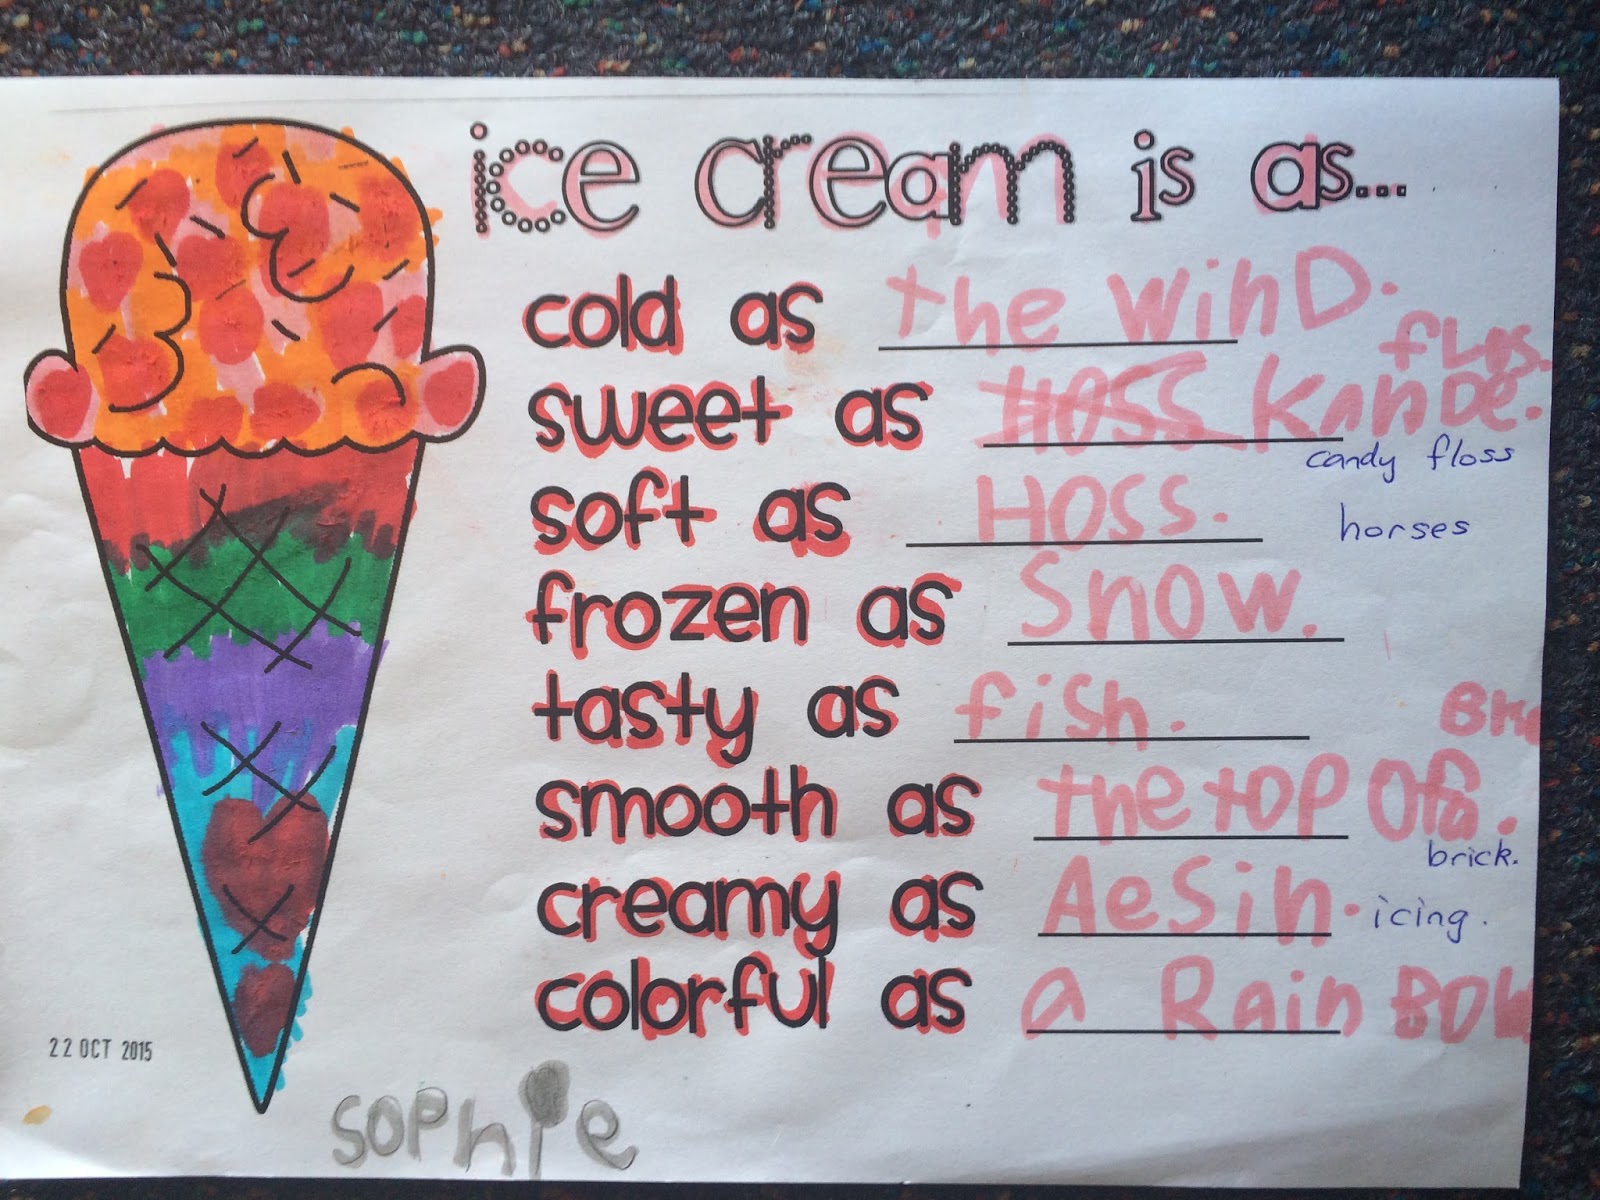 ice cream is as...
cold as the winD.
flos.
sweet as HOSS KanDe.
candy floss
soft as HOSS.
horses
frozen as Snow.
tasty as fish.
smooth as the top Of a.
brick.
creamy as AeSin.
icing.
colorful as a RainBOW
22 OCT 2015
SOPhie